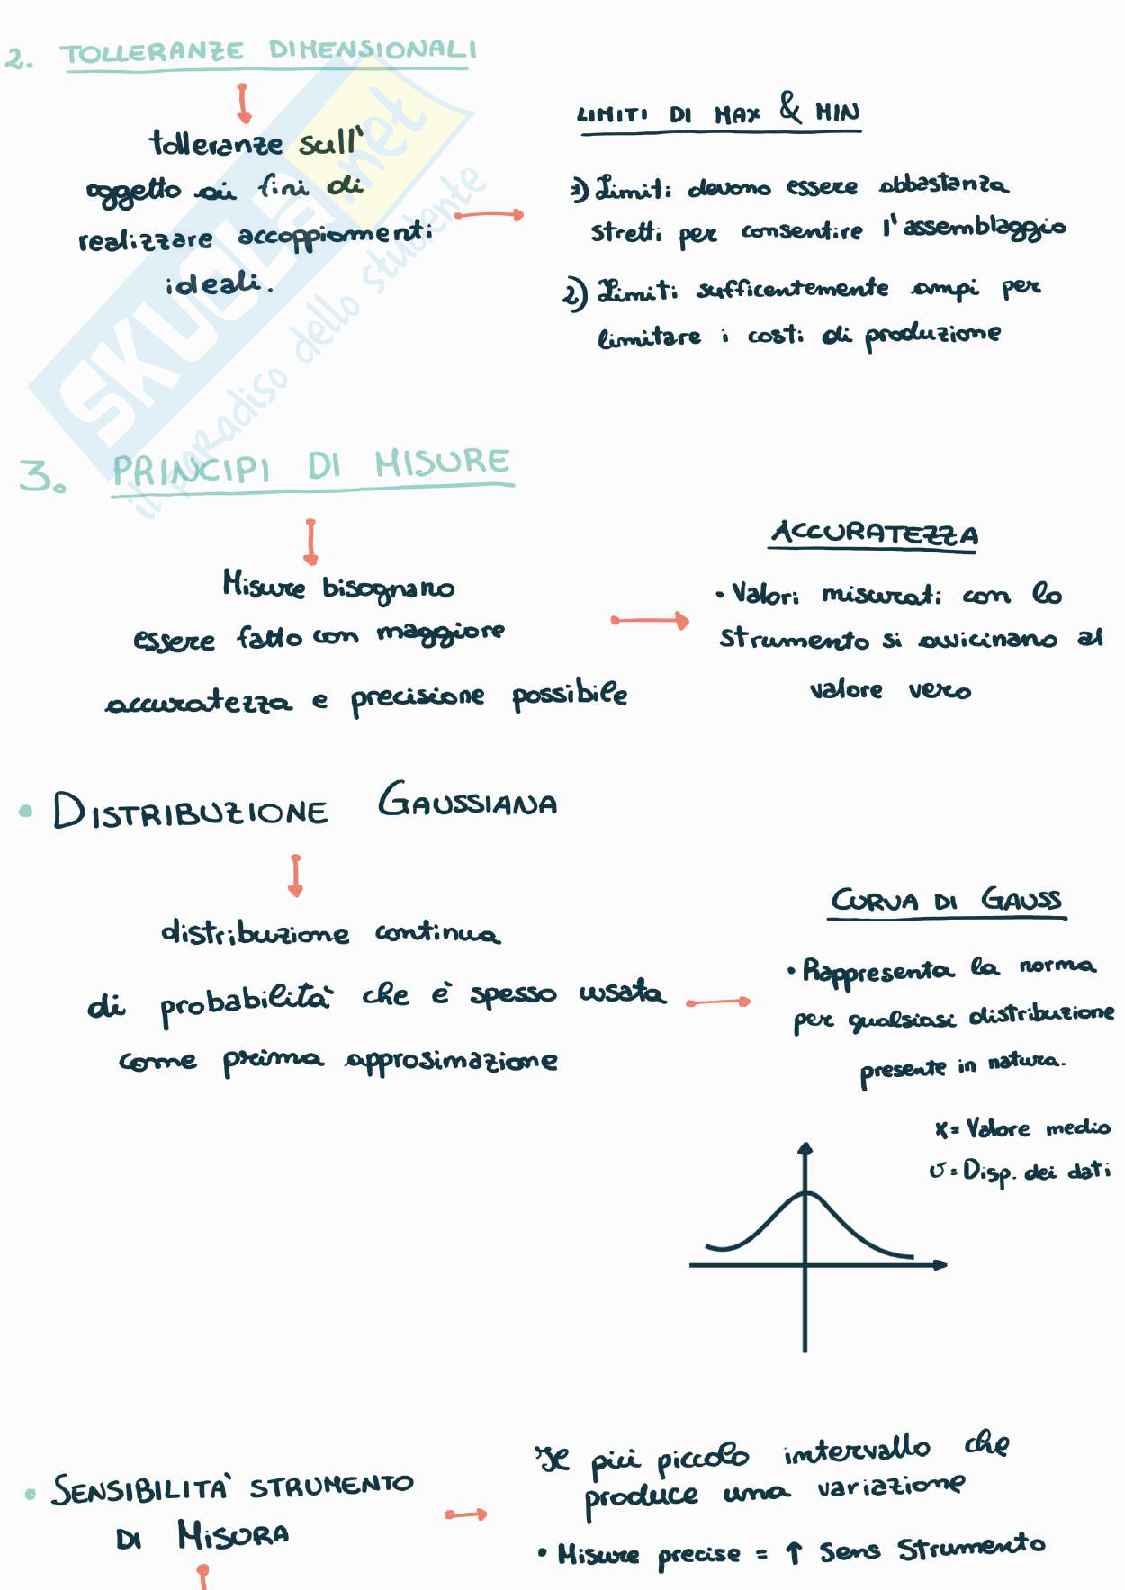 2. TOLLERANZE DIMENSIONALI
tolleranze sull'
oggetto ai fini di
realizzare accoppiamenti
ideali.
LIMITI DI MAX & MIN
1) Limiti devono essere abbastanza
stretti per consentire l'assemblaggio
2) Limiti sufficentemente ampi per
limitare i costi di produzione
SKUOLA.net
il paradiso dello studente
3. PRINCIPI DI MISURE
Misure bisognano
essere fatto con maggiore
accuratezza e precisione possibile
ACCURATEZZA
• Valori misurati con lo
strumento si avvicinano al
valore vero
• DISTRIBUZIONE GAUSSIANA
distribuzione continua
di probabilità che è spesso usata
come prima approsimazione
CURVA DI GAUSS
• Rappresenta la norma
per qualsiasi distribuzione
presente in natura.
x = Valore medio
σ = Disp. dei dati
• SENSIBILITA' STRUMENTO
DI MISURA
Il più piccolo intervallo che
produce una variazione
• Misure precise = ↑ Sens Strumento